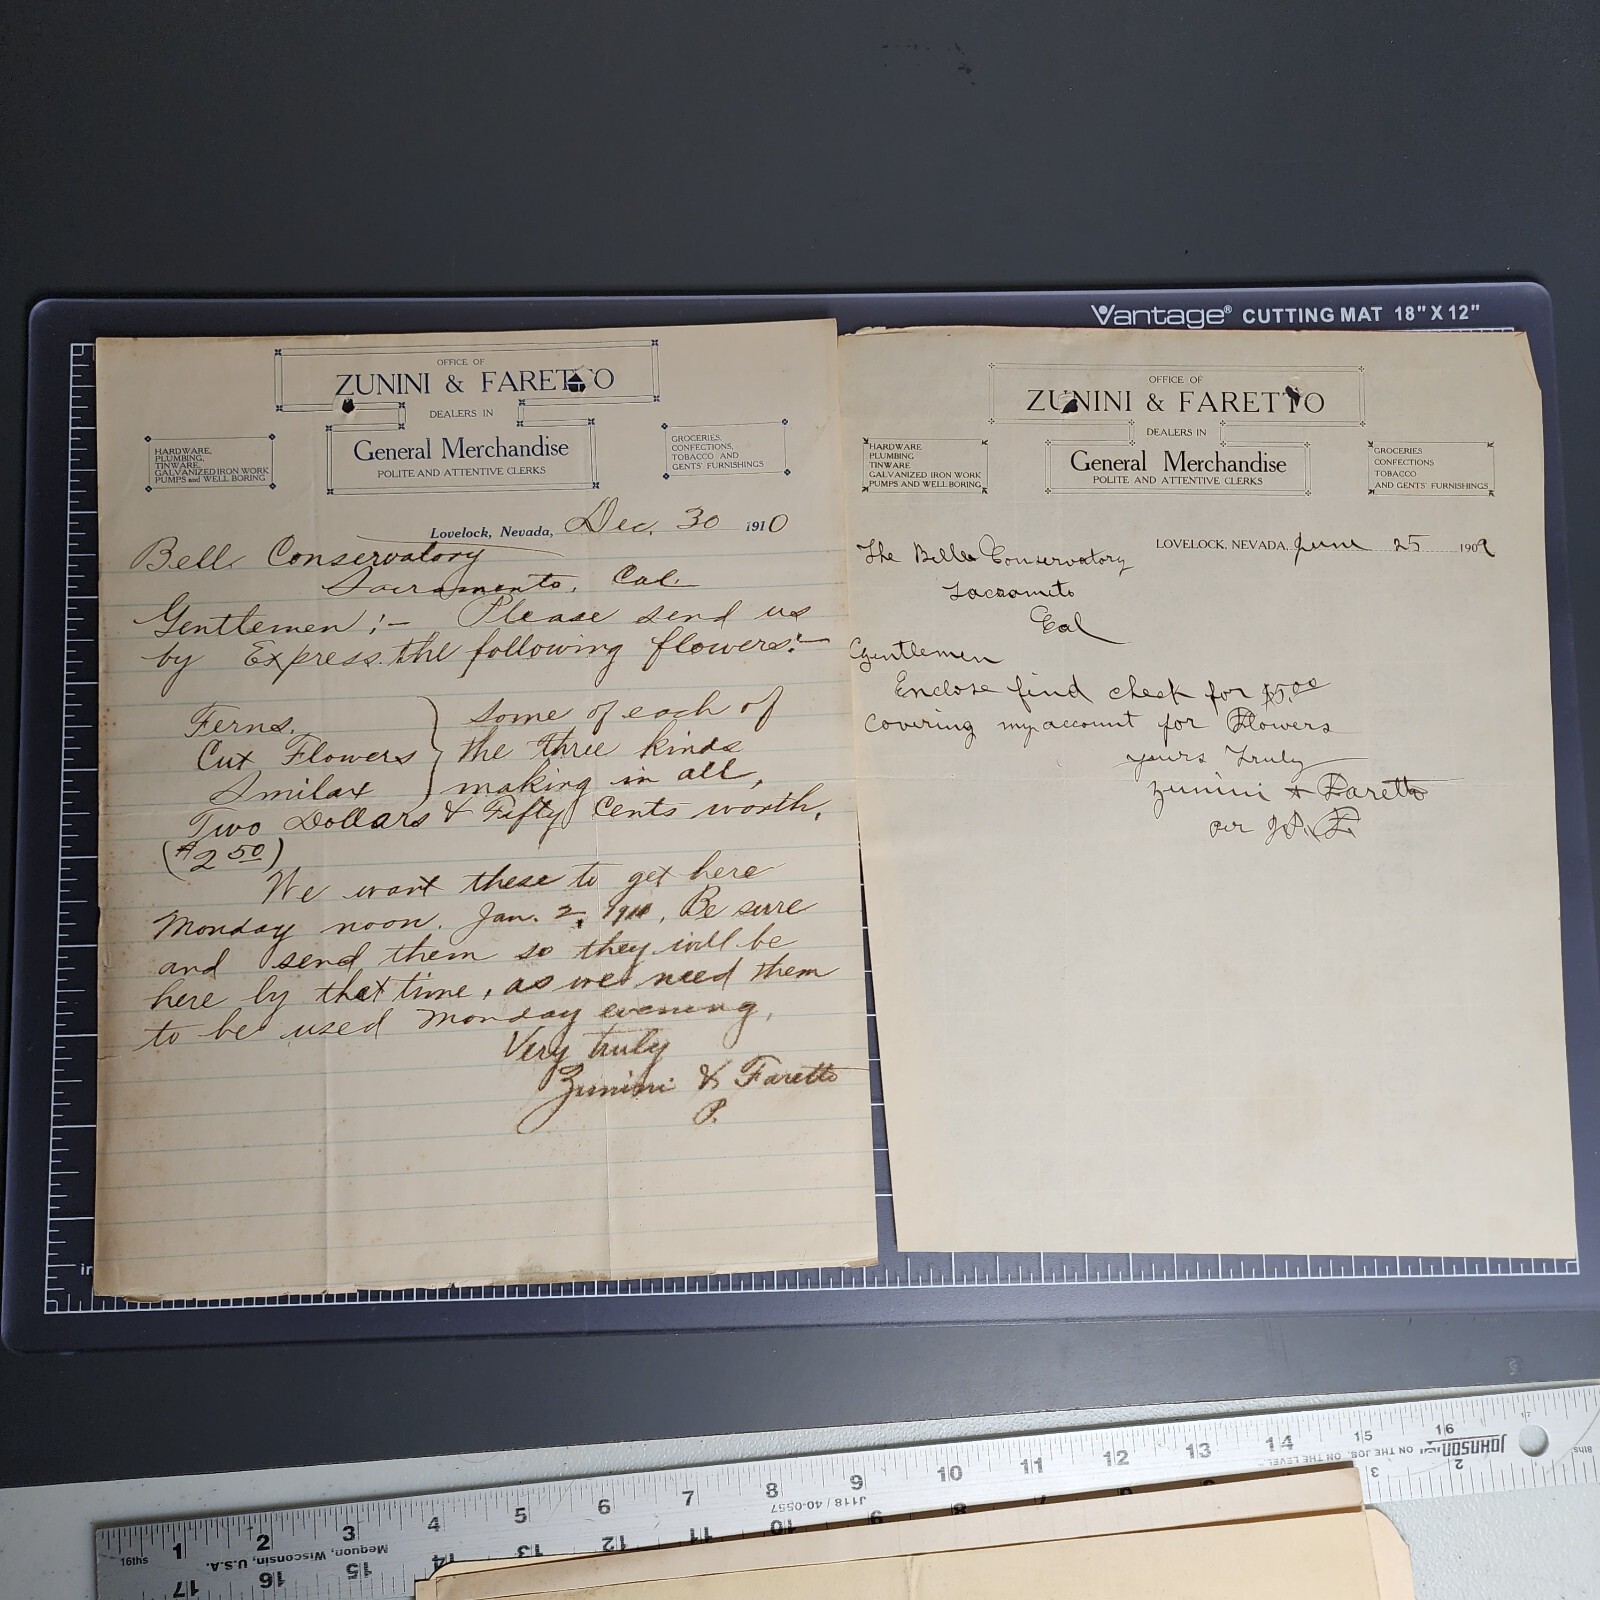 Vantage® CUTTING MAT 18" X 12"
OFFICE OF
ZUNINI & FARETTO
DEALERS IN
General Merchandise
POLITE AND ATTENTIVE CLERKS
HARDWARE,
PLUMBING,
TINWARE,
GALVANIZED IRON WORK
PUMPS and WELL BORING
GROCERIES,
CONFECTIONS,
TOBACCO AND
GENTS' FURNISHINGS
Lovelock, Nevada, Dec. 30 1910
Bell Conservatory
Sacramento, Cal.
Gentlemen:— Please send us
by Express the following flowers:—
Ferns. } some of each of
Cut Flowers } the three kinds
Smilax } making in all,
Two Dollars & Fifty Cents worth.
($2 50)
We want these to get here
Monday noon. Jan. 2, 1911. Be sure
and send them so they will be
here by that time, as we need them
to be used Monday evening,
Very truly
Zunini & Faretto
P.
OFFICE OF
ZUNINI & FARETTO
DEALERS IN
General Merchandise
POLITE AND ATTENTIVE CLERKS
HARDWARE
PLUMBING
TINWARE
GALVANIZED IRON WORK
PUMPS AND WELL BORING
GROCERIES
CONFECTIONS
TOBACCO
AND GENTS' FURNISHINGS
LOVELOCK, NEVADA, June 25 1909
The Bell Conservatory
Sacramento
Cal
Gentlemen
Enclose find check for $5.00
covering my account for Flowers
yours Truly
Zunini & Faretto
per
in
16ths 1 2 3 4 5 6 7 8 9 10 11 12 13 14 15 16
Mequon, Wisconsin, U.S.A.
J118 / 40-0557
JOHNSON
8ths
17 16 15 14 13 12 11 10 9 8 7 3 2